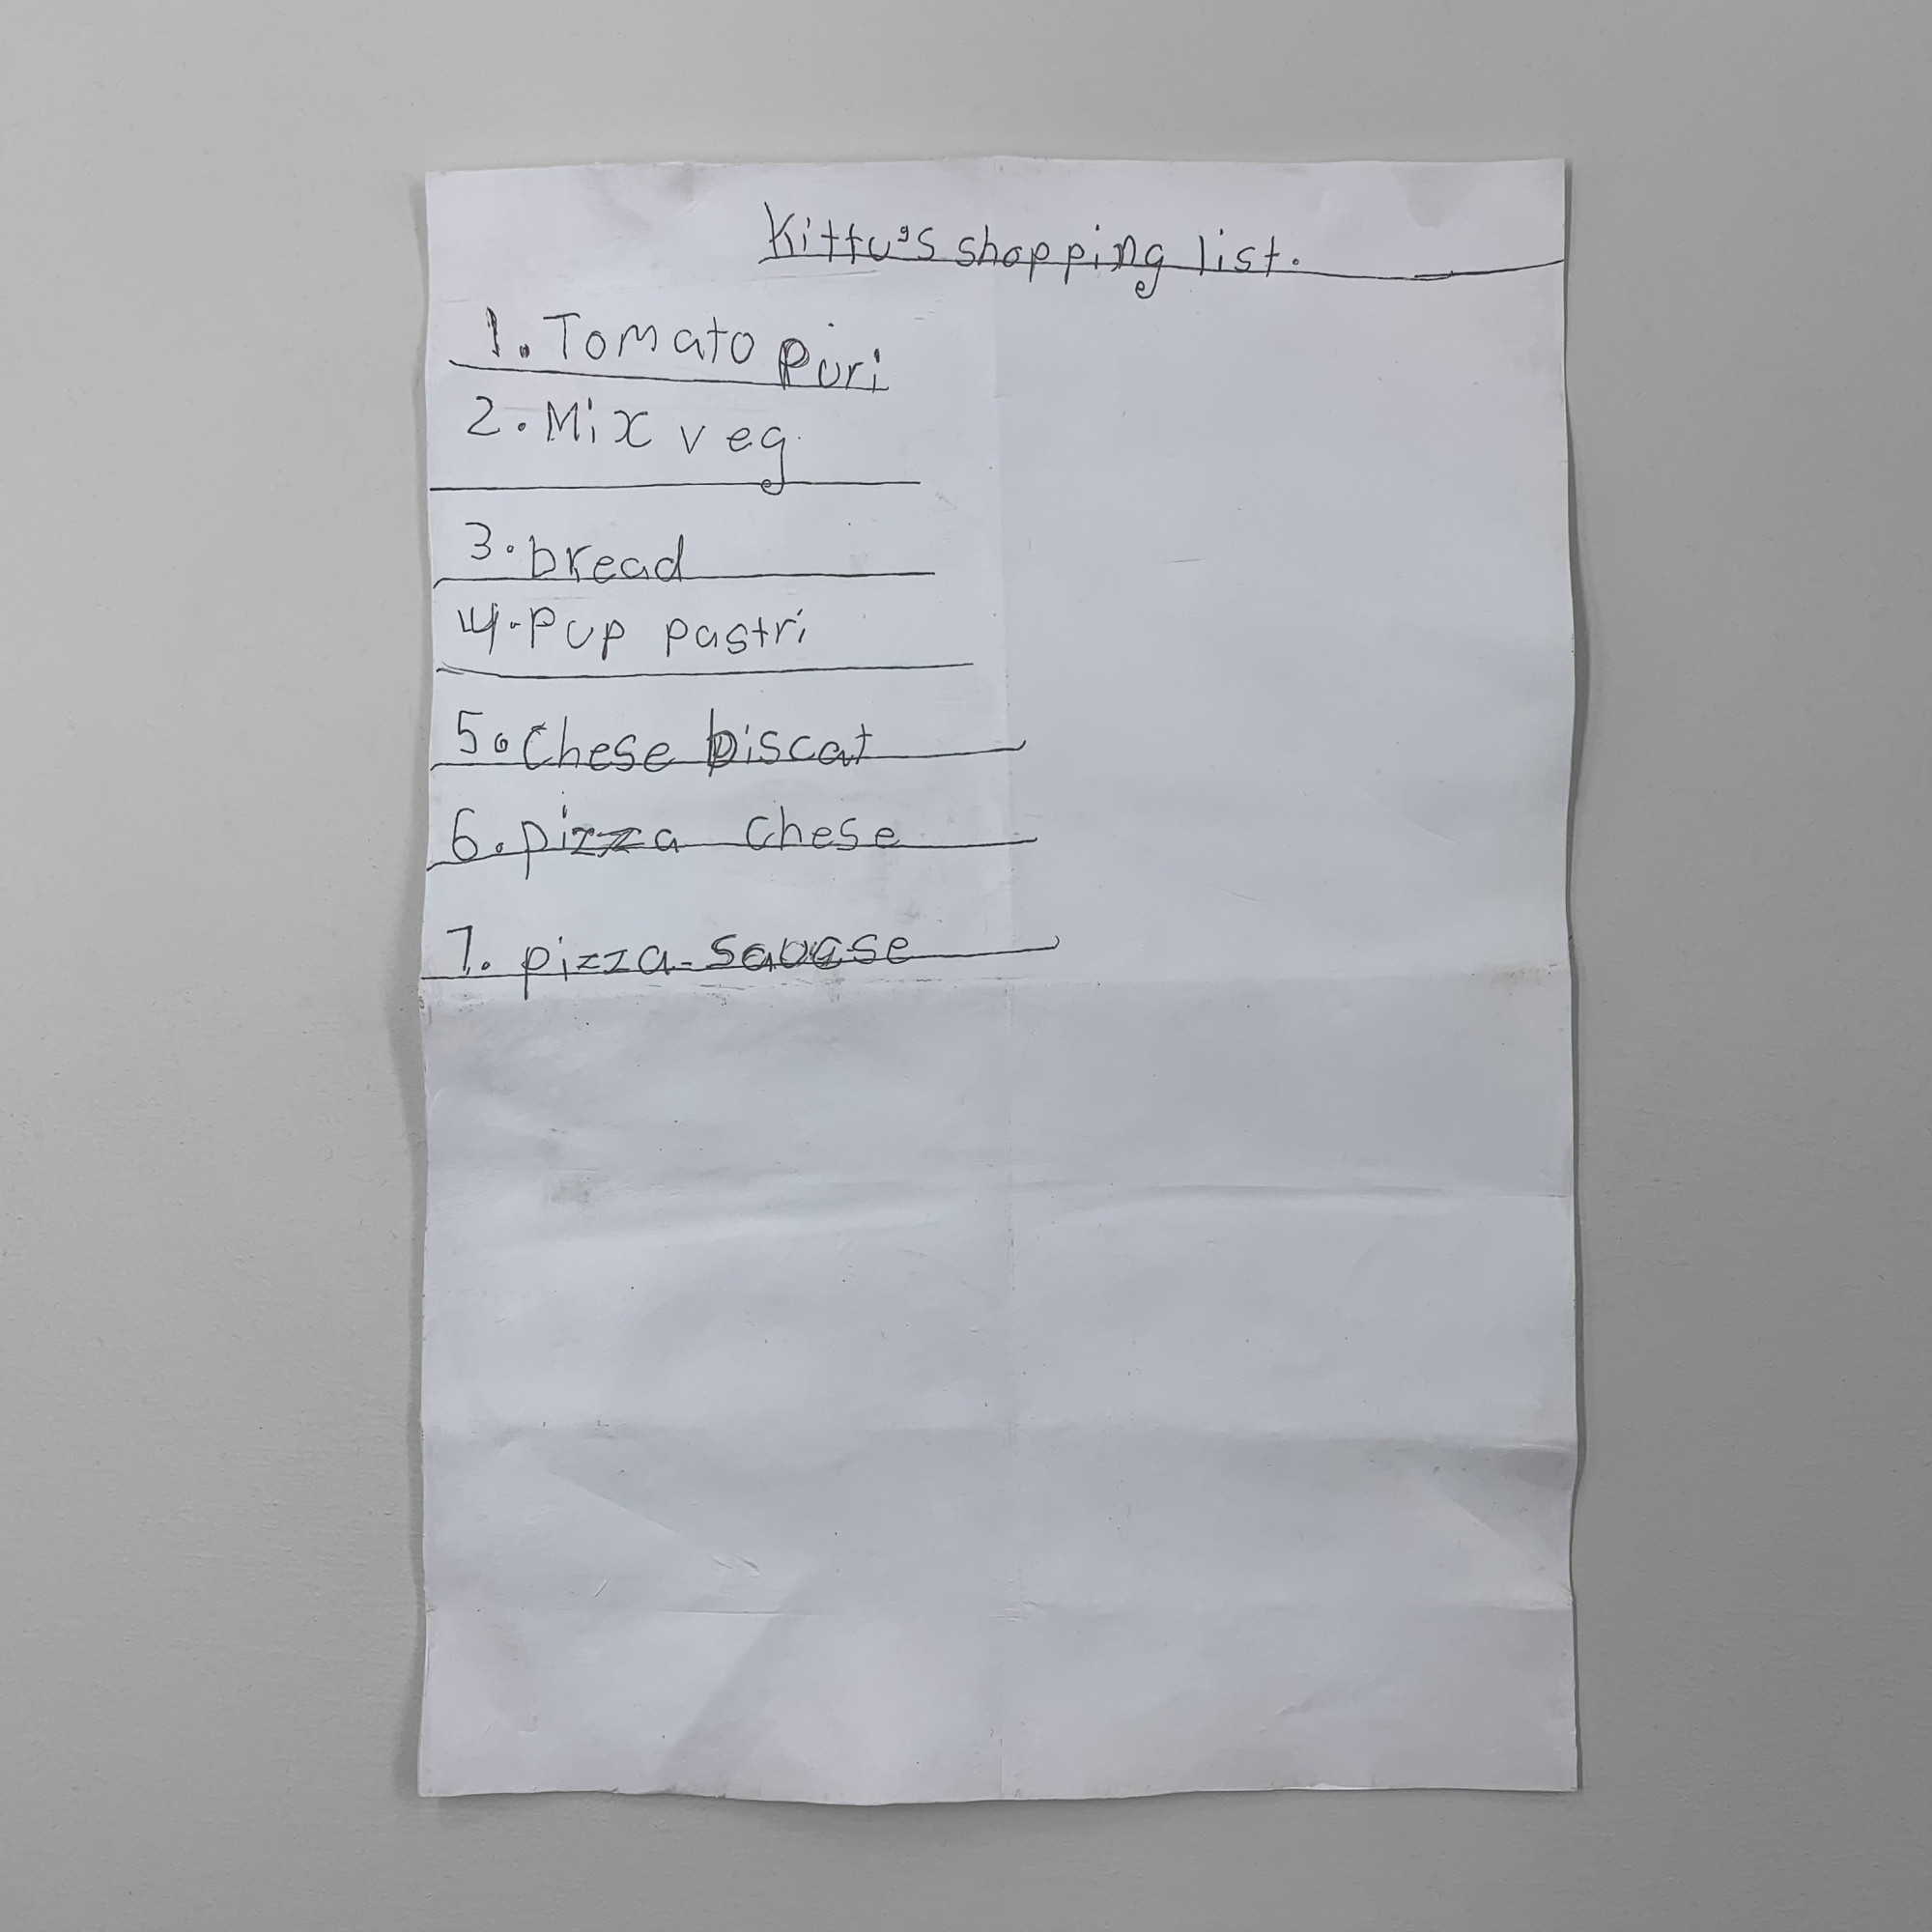 Kittu's shopping list.
1. Tomato puri
2. Mix veg.
3. bread
4. Pup pastri
5. Chese biscat
6. pizza chese
7. pizza sauase